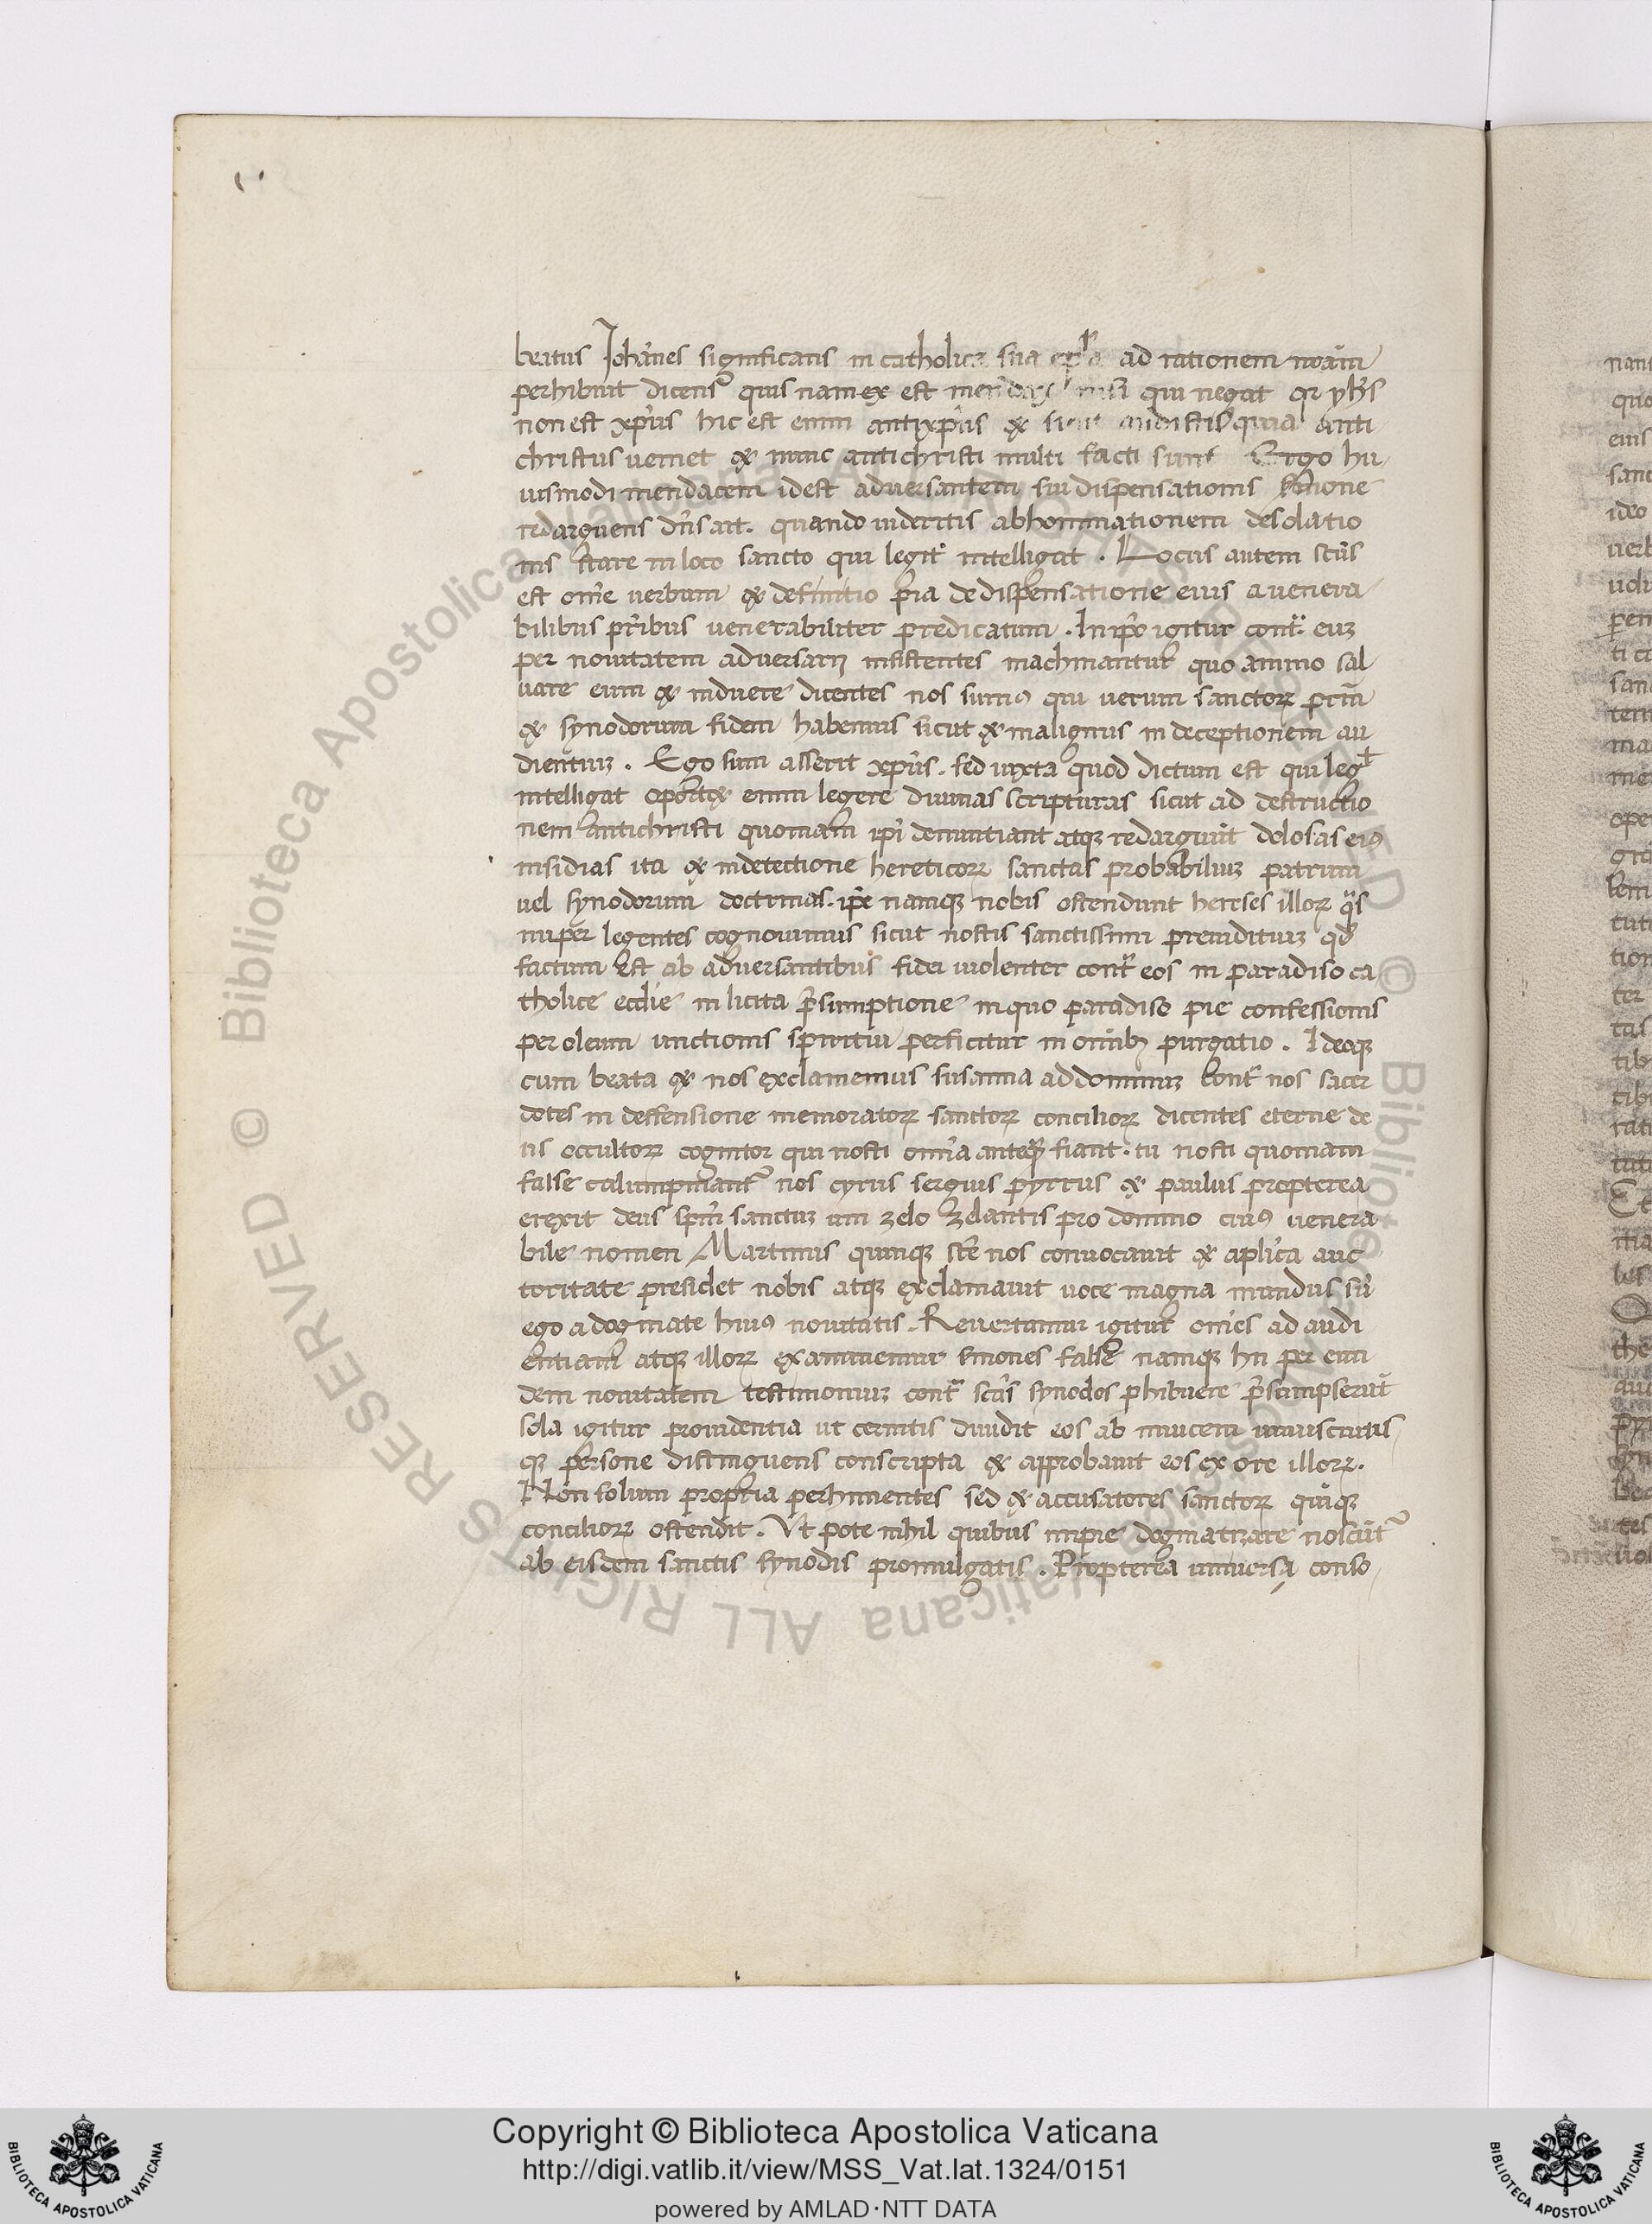 beatus Joha̅nes significans in catholica sua ep̅la ad rationem nr̅am
perhibuit dicens quis nam ex est mendax nisi qui negat qr yhs̅
non est xp̅us hic est enim antixp̅us & sicut audistis quia anti
christus veniet & nunc antichristi multi facti sunt Ergo hu
iusmodi mendacem idest adversantem sui dispensationis sermone
redarguens dn̅s ait. quando videritis abhominationem desolatio
nis stare in loco sancto qui legit intelligat. Locus autem sc̅us
est om̅e verbum & definitio pia de dispensatione eius a venera
bilibus pr̅ibus venerabiliter predicatum. In ip̅o igitur contr̅ euz
per novitatem adversarij insistentes machinantur quo animo sal
vare eum & induere dicentes nos sumꝰ qui verum sanctoꝝ pr̅m
& synodorum fidem habemus sicut & malignus in deceptionem au
dientiuz. Ego sum asserit xp̅us. sed iuxta quod dictum est qui legt
intelligat oportet enim legere divinas scripturas sicut ad destructio
nem antichristi quoniam ip̅i denuntiant atqꝫ redarguūt dolosas eiꝰ
insidias ita & in detectione hereticoꝝ sanctas probabiliuz patrum
vel synodorum doctrinas. ip̅e namqꝫ nobis ostendunt hereses illoꝝ q̅s
nuper legentes cognovimus sicut nostis sanctissimi preuidituz qd̅
factum est ab adversantibus fidei violenter contr̅ eos in paradiso ca
tholice ecclie̅ in licita p̅sumptione in quo paradiso pie confessionis
per oleum unctionis spiritu perficitur in om̅ibꝫ purgatio. Ideoqꝫ
cum beata & nos exclamemus susanna ad dominuz contr̅ nos sacer
dotes in deffensione memoratoꝝ sanctoꝝ concilioꝝ dicentes eterne de
us occultoꝝ cognitor qui nosti om̅ia anteq̅ fiant. tu nosti quoniam
false calumpniant᷑ nos cyrus sergius pyrrus & paulus propterea
erexit deus sp̅m sanctuz um zelo zelantis pro domino cuiꝰ venera
bile nomen Martinus quinqꝫ st̅e nos convocavit & aplica̅ auc
toritate presidet nobis atqꝫ exclamavit voce magna mundus su̅
ego a dogmate huiꝰ novitatis. Revertamur igitur om̅es ad audi
entiam atqꝫ illoꝝ examinemur sermones false namqꝫ hii per eun
dem novitatem testimoniuz contr̅ sc̅as synodos phibuere p̅sumpserūt
sola igitur providentia ut cernitis dividit eos ab invicem uniuscuius
qꝫ persone distinguens conscripta & approbavit eos ex ore illoꝝ.
Non solum propria perhimentes sed & accusatores sanctoꝝ quīqꝫ
concilioꝝ ostendit. Ut pote nihil quibus impie dogmatizare noscūt᷑
ab eisdem sanctis synodis promulgatis. Propterea universa conso
Copyright © Biblioteca Apostolica Vaticana
http://digi.vatlib.it/view/MSS_Vat.lat.1324/0151
powered by AMLAD·NTT DATA